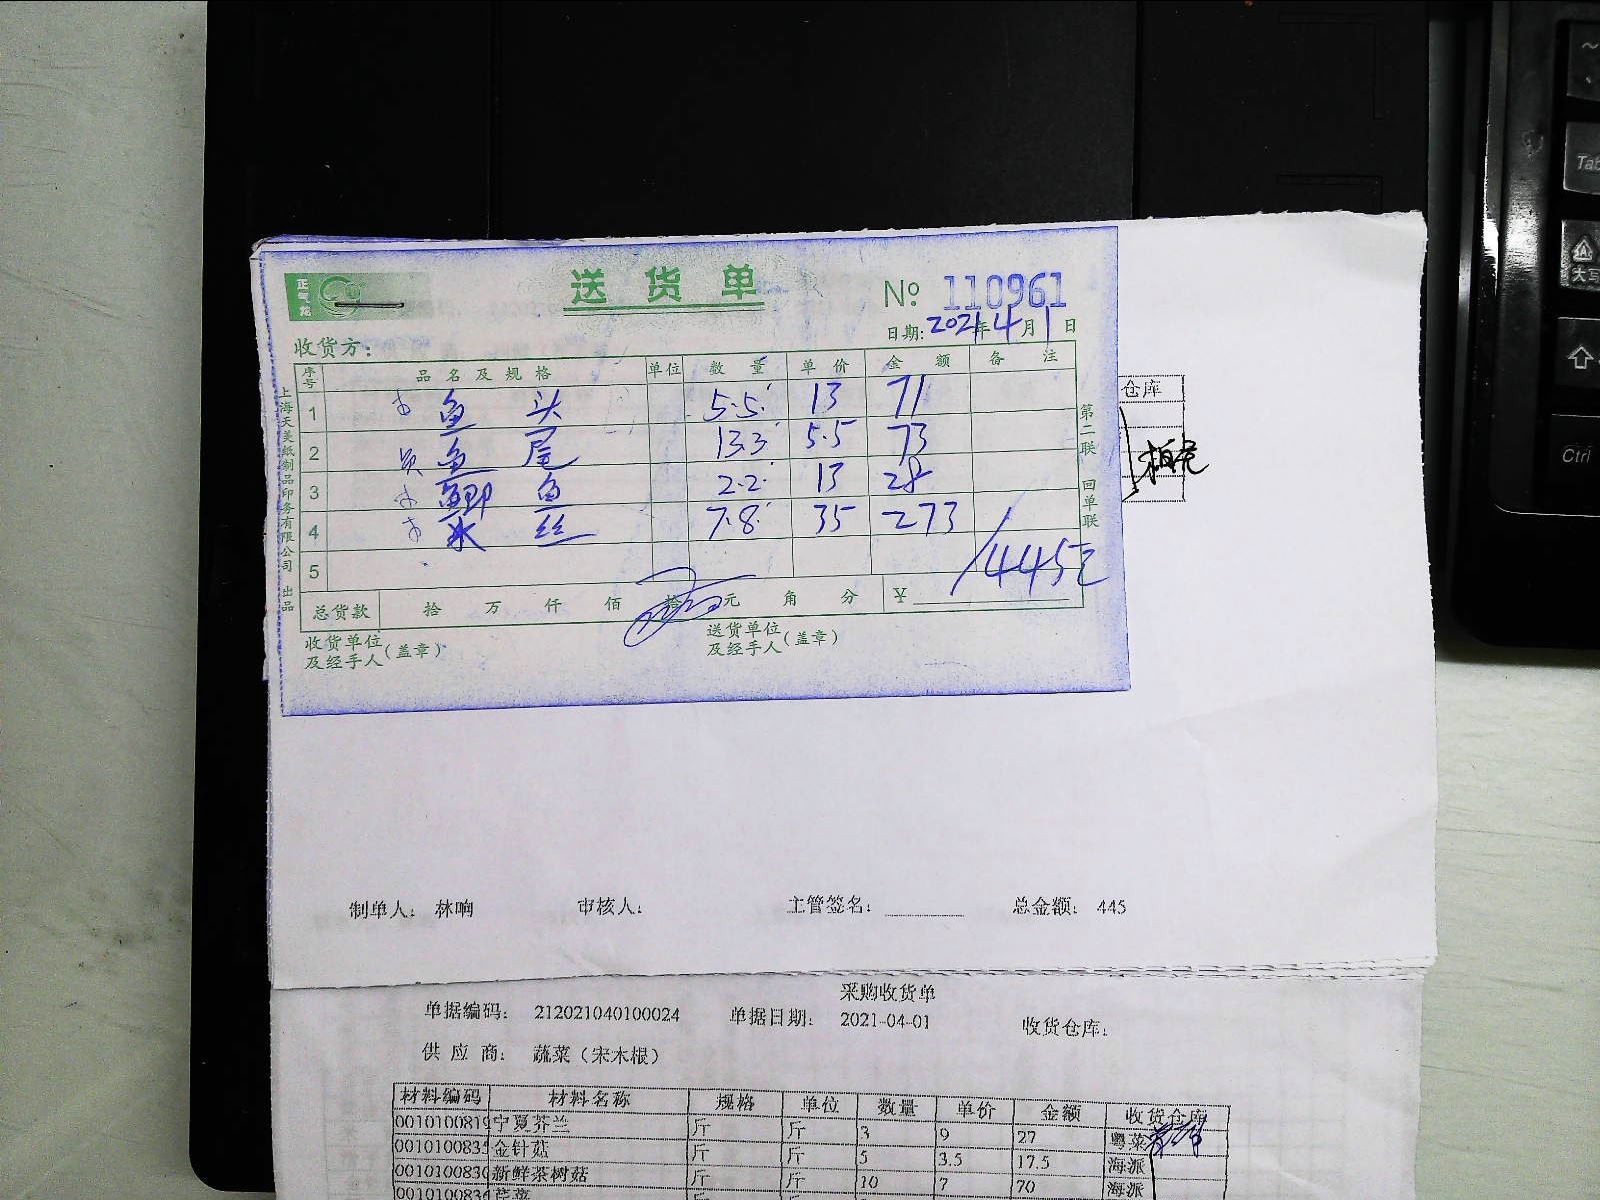 正气龙
送 货 单
№ 110961
日期: 2021年4月1日
收货方:
序号 品名及规格 单位 数量 单价 金额 备注
1 鱼头 5.5 13 71
2 鱼尾 13.3 5.5 73
3 鲫鱼 2.2 13 28
4 丝 7.8 35 273
5
445元
总货款 拾 万 仟 佰 拾 元 角 分 ¥
收货单位及经手人(盖章)
送货单位及经手人(盖章)
上海天美纸制品印务有限公司 出品
第二联 回单联
仓库
制单人: 林响 审核人: 主管签名: 总金额: 445
采购收货单
单据编码: 212021040100024 单据日期: 2021-04-01 收货仓库:
供应商: 蔬菜(宋木根)
材料编码 材料名称 规格 单位 数量 单价 金额 收货仓库
001010081 宁夏芥兰 斤 斤 3 9 27 粤菜
001010083 金针菇 斤 斤 5 3.5 17.5 海派
001010083 新鲜茶树菇 斤 斤 10 7 70 海派
Tab
大写
Ctrl